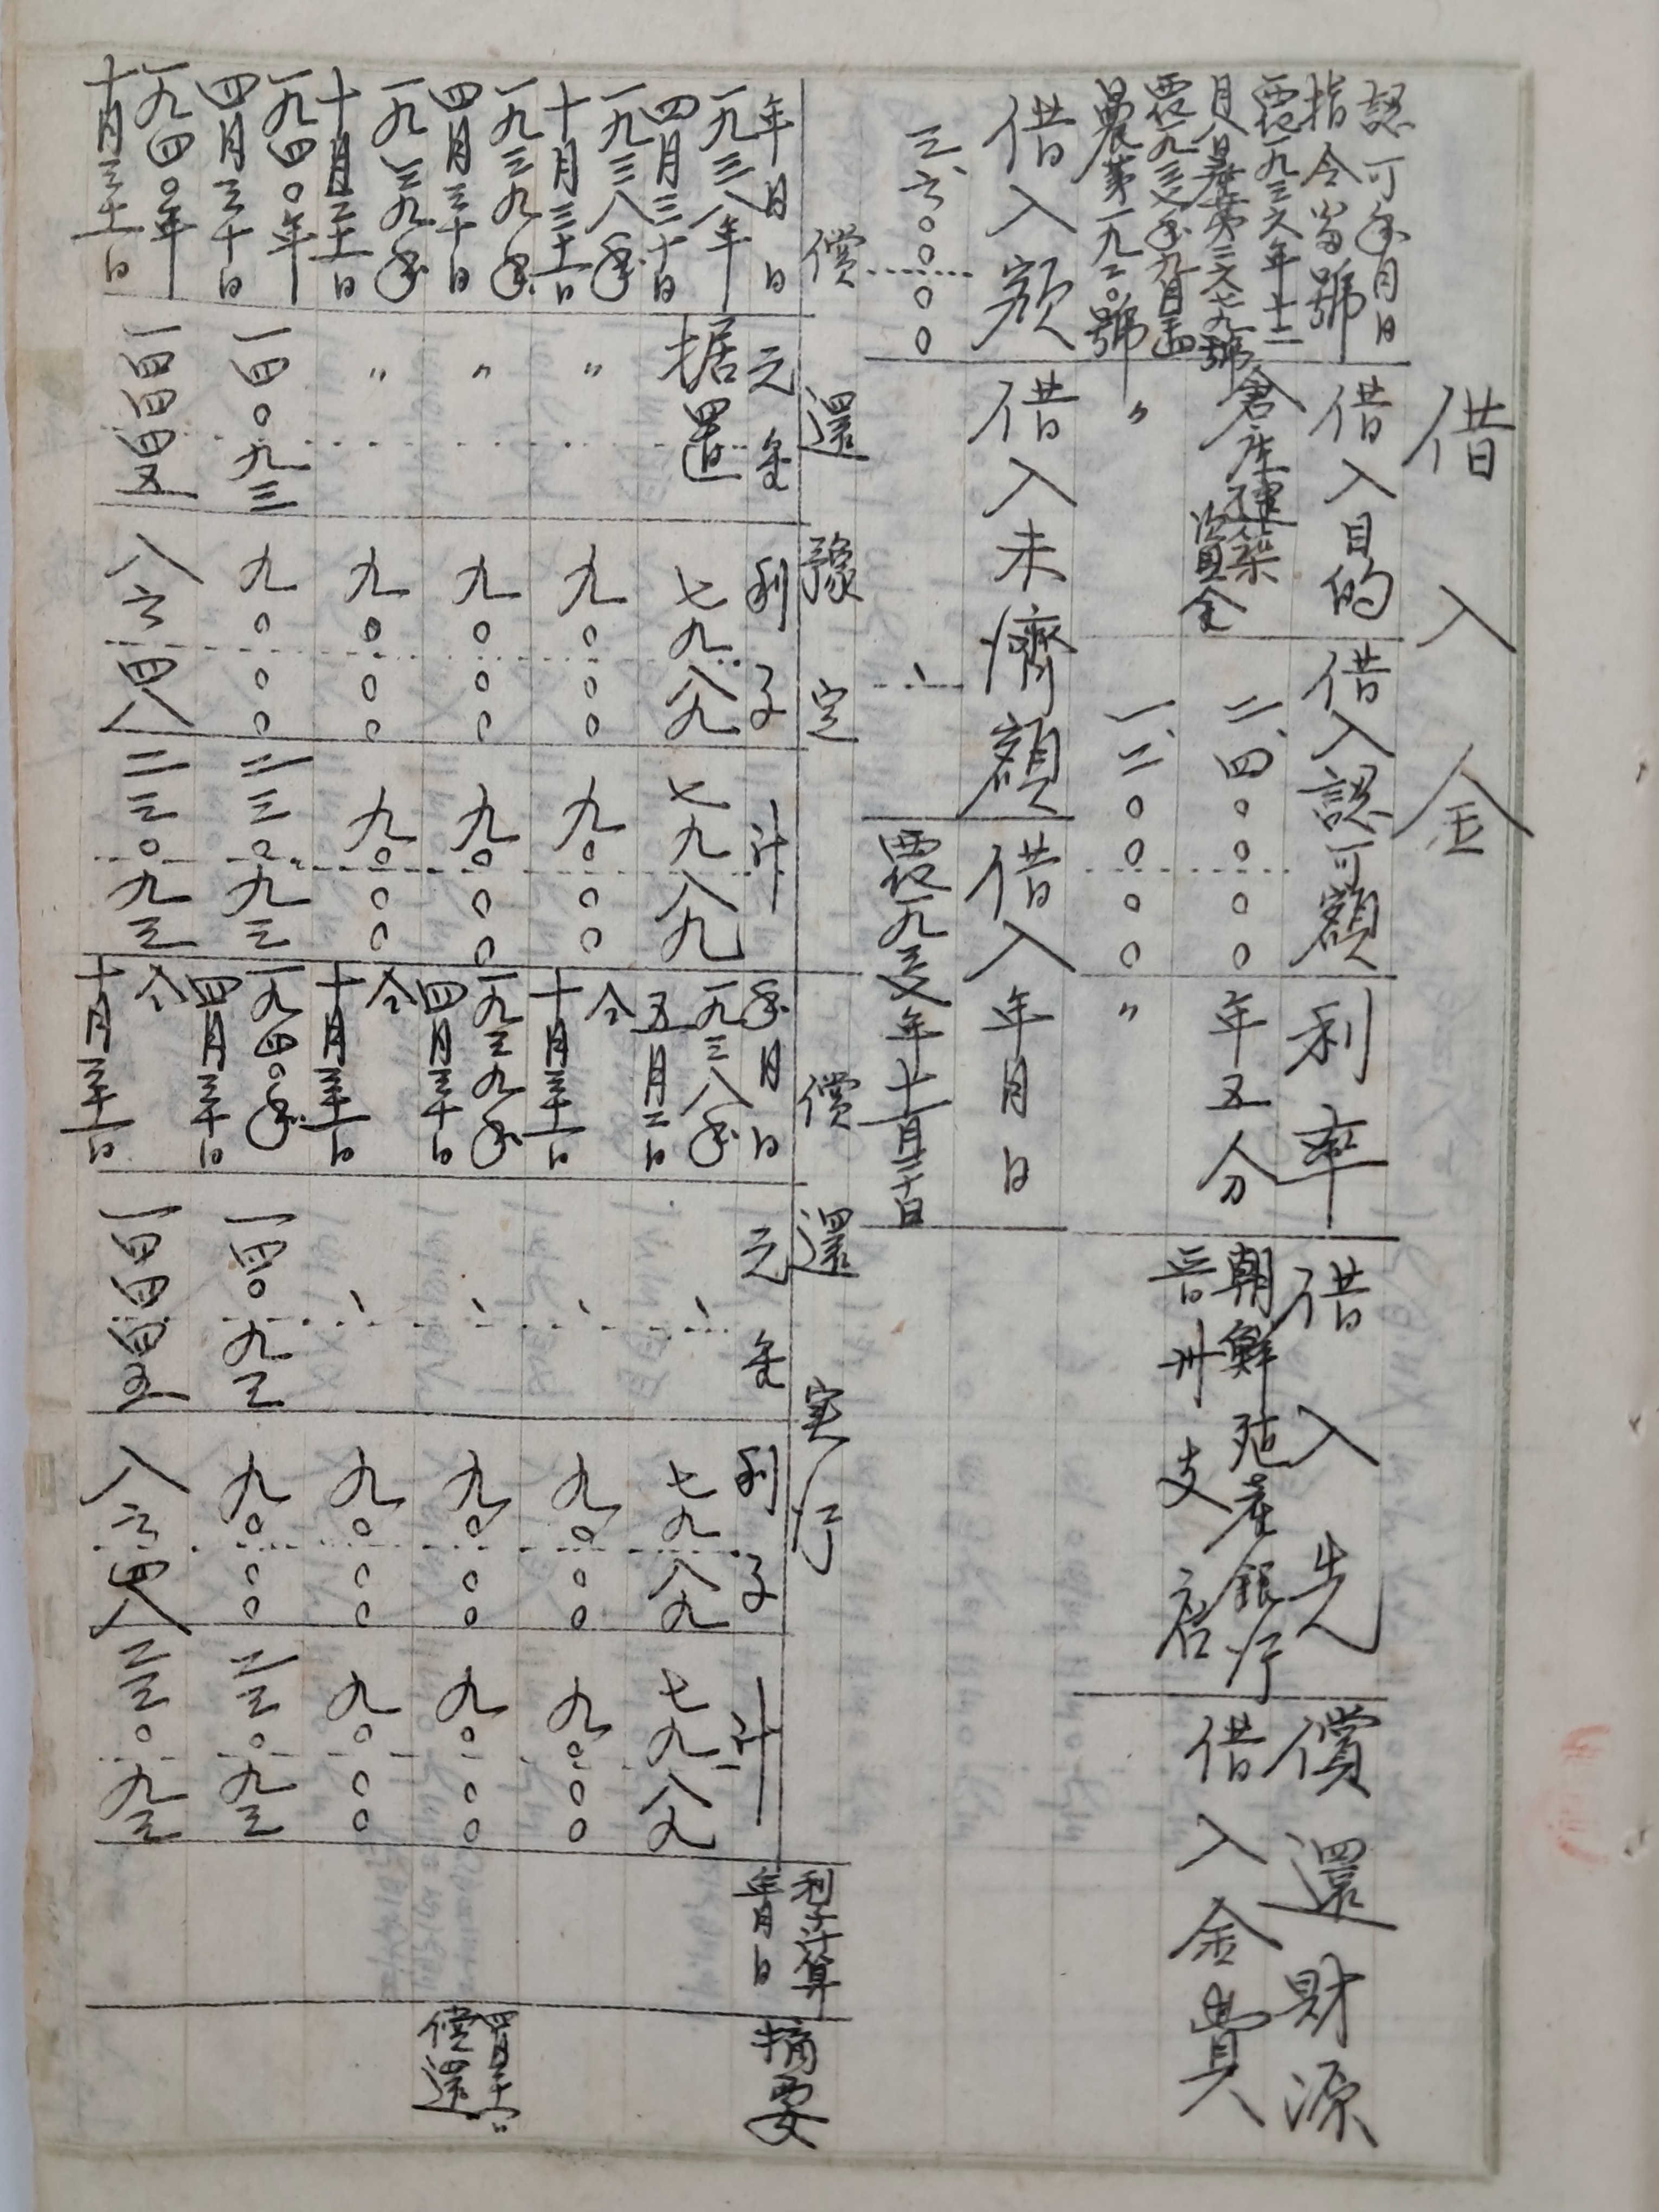 借入金
認可年月日
指令番號
借入目的
借入認可額
利率
借入先
償還財源
西紀一九三六年十二
月八日産第三六七九號
倉庫建築
資金
二、四〇〇〇〇
年五分
朝鮮殖産銀行
晋州支店
借入金費
西紀一九三七年九月
農第一九二〇號
〃
一、二〇〇〇〇
〃
借入額
借入未濟額
借入年月日
三、六〇〇〇〇
、
西紀一九三七年十一月二十日
償還豫定
償還実行
利子計算
年月日
摘要
年月日
元金
利子
計
年月日
元金
利子
計
一九三八年
四月三十日
据置
七九八九
七九八九
一九三八年
五月二日
、
七九八九
七九八九
一九三八年
十月三十一日
〃
九〇〇〇
九〇〇〇
仝
十月三十一日
、
九〇〇〇
九〇〇〇
一九三九年
四月三十日
〃
九〇〇〇
九〇〇〇
一九三九年
四月三十日
、
九〇〇〇
九〇〇〇
償還
一九三九年
十月三十一日
〃
九〇〇〇
九〇〇〇
仝
十月三十一日
、
九〇〇〇
九〇〇〇
一九四〇年
四月三十日
一四〇九三
九〇〇〇
二三〇九三
一九四〇年
四月三十日
一四〇九三
九〇〇〇
二三〇九三
一九四〇年
十月三十一日
一四四四五
八六四八
二三〇九三
仝
十月三十一日
一四四四五
八六四八
二三〇九三